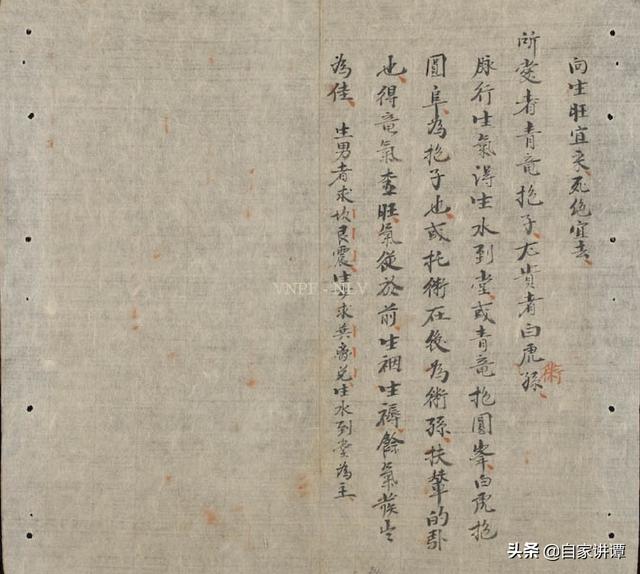 向生旺宜来死絶宜去
所愛者青竜抱子尤貴者白虎孫
術
脉行生氣得生水到堂或青竜抱圓峯白虎抱
圓阜為抱子也或托術在後為術孫扶輦的卦
也得竜氣查旺氣從於前生裀生褥餘氣
為佳 生男者求坎艮震生女求巽兑生水到堂為主
VNPF - NLV
头条 @自家讲谭